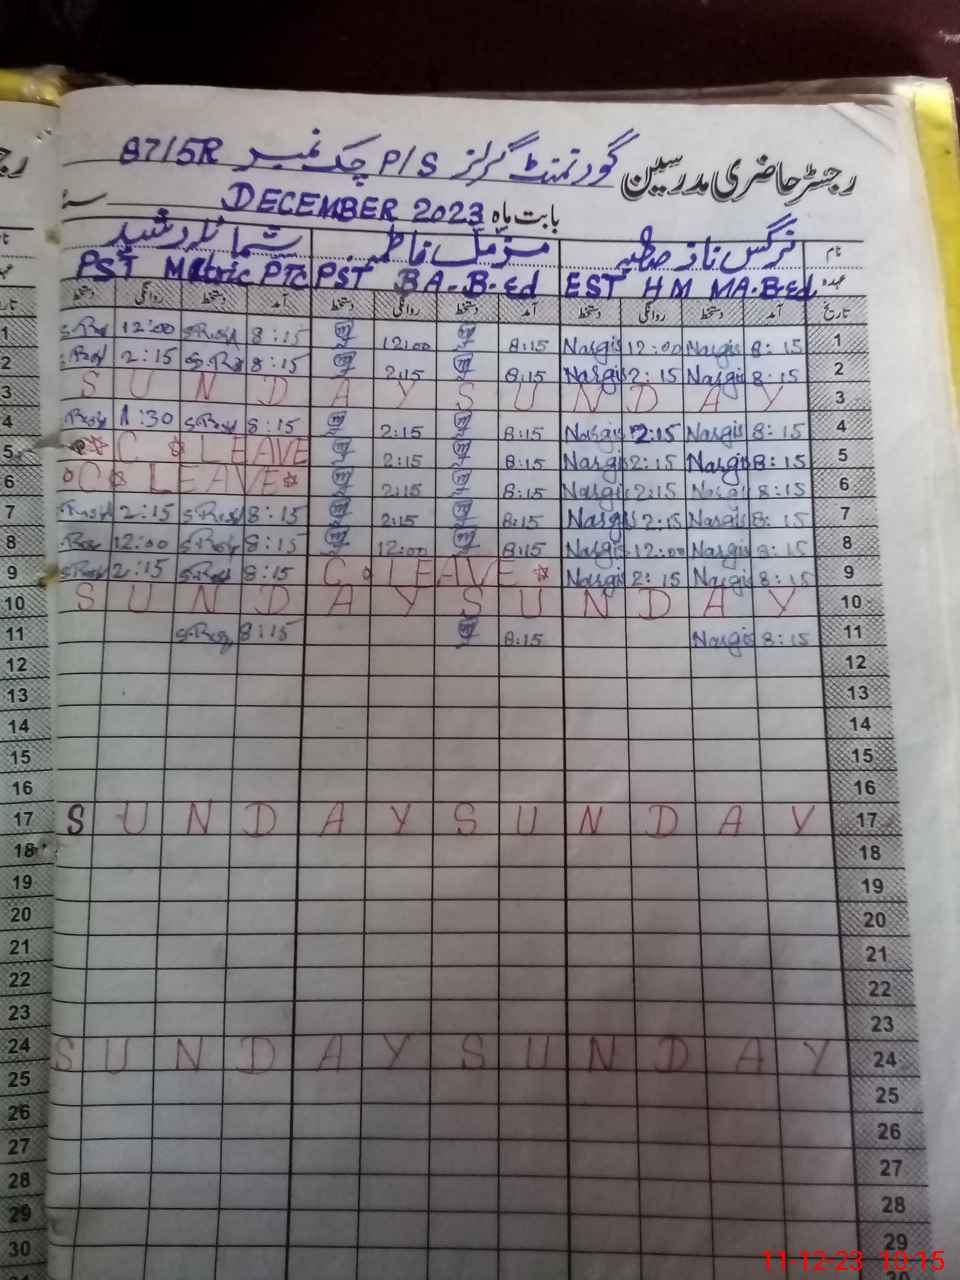 رجسٹر حاضری مدرسین گورنمنٹ گرلز P/S چک نمبر 87/5R
بابت ماہ DECEMBER 2023
نام نرگس ناز صاحبہ مزمل فاطمہ شمائلہ رشید
عہدہ EST HM MA.B.Ed PST BA.B.Ed PST Matric PTC
تاریخ آمد دستخط روانگی دستخط آمد دستخط روانگی دستخط آمد دستخط روانگی دستخط
1 8:15 Nargis 12:00 Nargis 8:15 12:00 8:15 12:00
2 8:15 Nargis 2:15 Nargis 8:15 2:15 8:15 2:15
3 SUNDAY SUNDAY
4 8:15 Nargis 2:15 Nargis 8:15 2:15 8:15 1:30
5 8:15 Nargis 2:15 Nargis 8:15 2:15 C LEAVE
6 8:15 Nargis 2:15 Nargis 8:15 2:15 C LEAVE
7 8:15 Nargis 2:15 Nargis 8:15 2:15 8:15 2:15
8 8:15 Nargis 12:00 Nargis 8:15 12:00 8:15 12:00
9 8:15 Nargis 2:15 Nargis C LEAVE 8:15 2:15
10 SUNDAY SUNDAY
11 8:15 Nargis 8:15 8:15
12
13
14
15
16
17 SUNDAY SUNDAY
18
19
20
21
22
23
24 SUNDAY SUNDAY
25
26
27
28
29
30
11-12-23 10:15